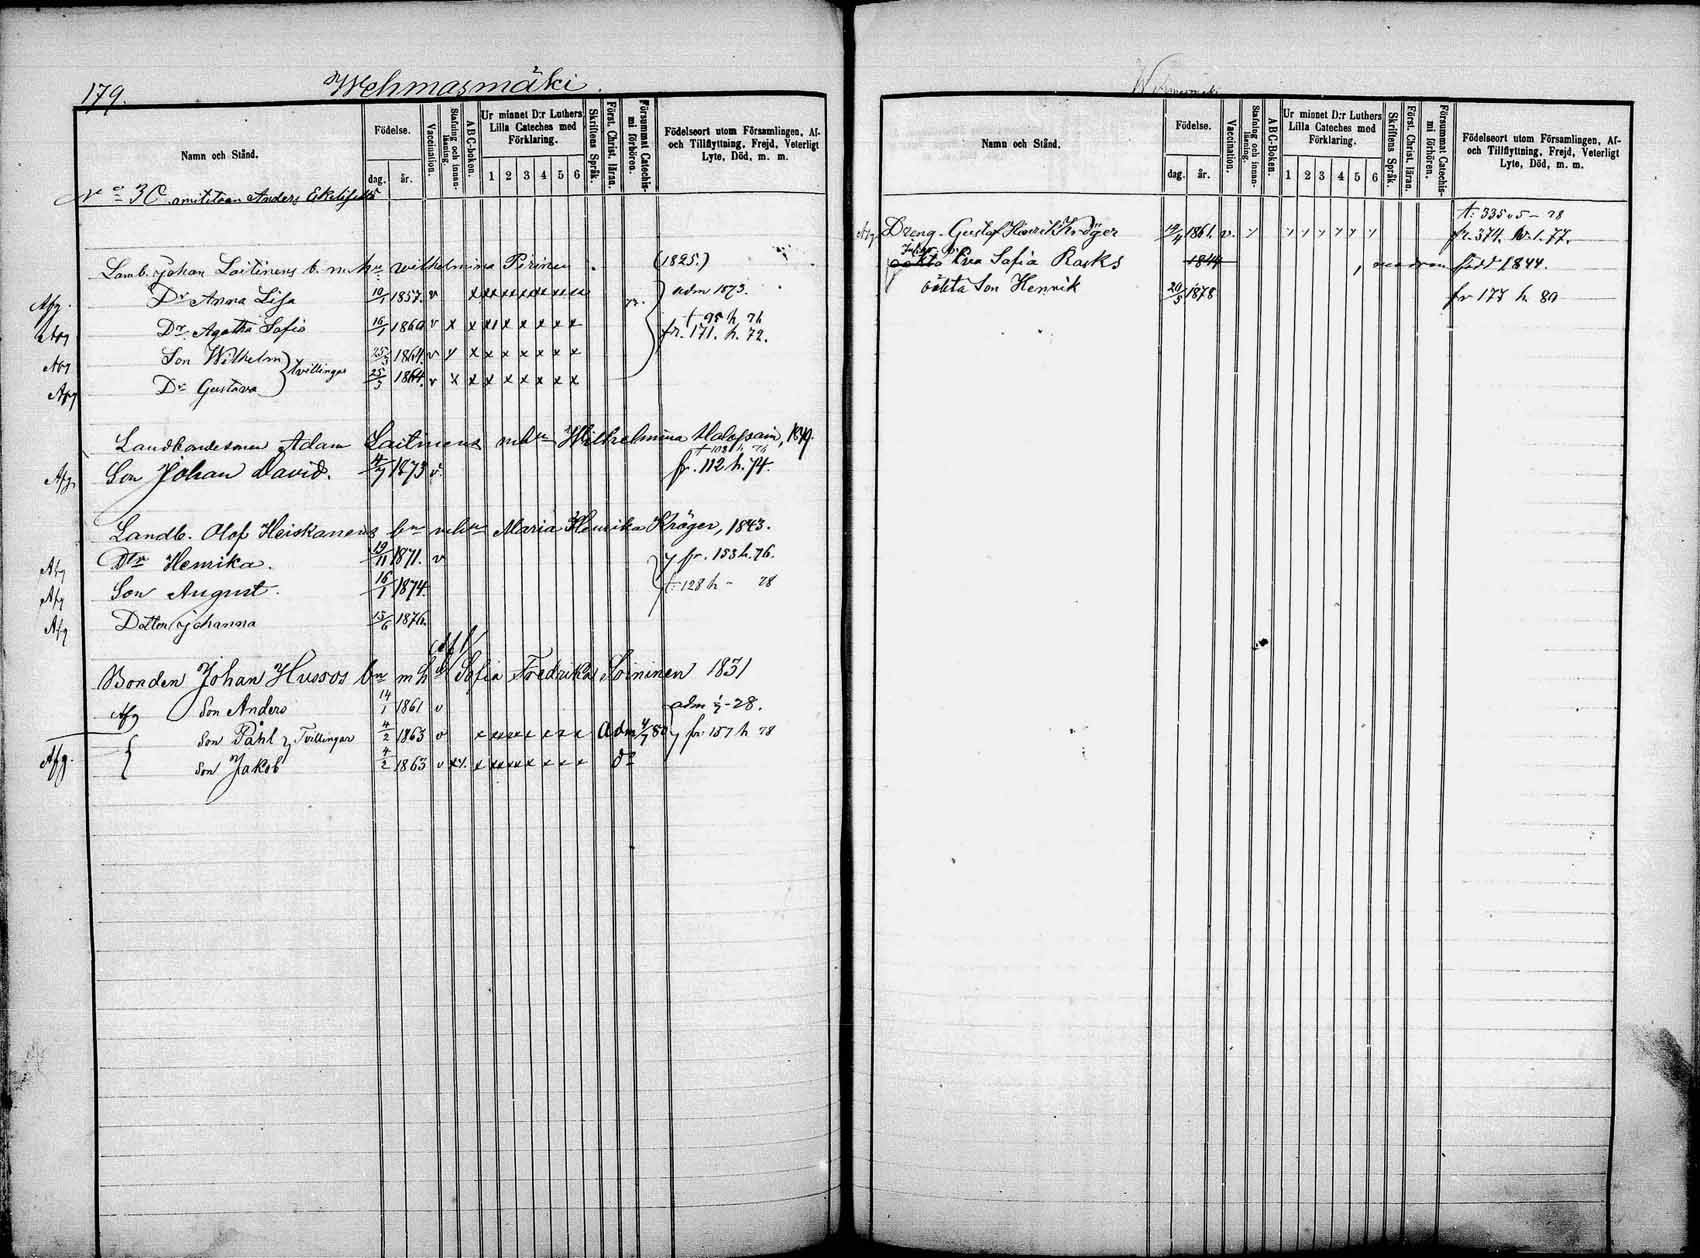 179. Wehmasmäki.
Namn och Stånd.
Födelse.
dag. år.
Vaccination.
Stafning och innan-läsning.
A B C-boken.
Ur minnet D:r Luthers Lilla Cateches med Förklaring.
1 2 3 4 5 6
Skriftens Språk.
Förs. Christ. läran.
Försummat Catechis-mi förhören.
Födelseort utom Församlingen, Af- och Tillflyttning, Frejd, Veterligt Lyte, Död, m. m.
No 3 Anders
Lamb. Johan Laitinens b. m. h. Wilhelmina Pirinen (1825.)
Afg. Dr Anna Lisa 10/1 1857. v x x x x x x x x adm 1873.
Afg Dr Agatha Sofia 16/1 1860 v x x x x x x x x t 95 h 76
fr. 171. h. 72.
Afg Son Wilhelm 25/3 1864. v y x x x x x x x
tvillingar
Afg Dr Gustava 25/3 1864. v x x x x x x x x
Landbondesonen Adam Laitinens mhu Wilhelmina 1849.
Afg. Son Johan David. 4/7 1873 v. fr. 112 h. 74.
Landb. Olof Heiskanens bn mhu Maria Henrika Kröger, 1843.
Afg Dtr Henrika. 19/11 1871. v fr. 153 h. 76.
Afg Son August. 16/1 1874. t. 128 h - 78
Afg Dotter Johanna 15/6 1876.
Bonden Johan Hussos bn m h Sofia Fredrika Soininen 1831
Afg Son Anders 14/1 1861 v
Son Påhl Tvillingar 4/2 1863 v x x x x x x x Adm 4/7 80 fr 157 h 78
Afg. Son Jakob 4/2 1863 v x x x x x x x do
Namn och Stånd.
Födelse.
dag. år.
Vaccination.
Stafning och innan-läsning.
A B C-Boken.
Ur minnet D:r Luthers Lilla Cateches med Förklaring.
1 2 3 4 5 6
Skriftens Språk.
Förs. Christ. läran.
Försummat Catechis-mi förhören.
Födelseort utom Församlingen, Af- och Tillflyttning, Frejd, Veterligt Lyte, Död, m. m.
t. 335 v 5 - 78
Afg. Dreng. Gustaf Hinrik Kröger 19/4 1861. v. y y y y y y y fr. 374. 77.
Eva Sofia Rasks 1844 född 1844.
oäkta Son Henrik 20/5 1878 fr 177 h 80